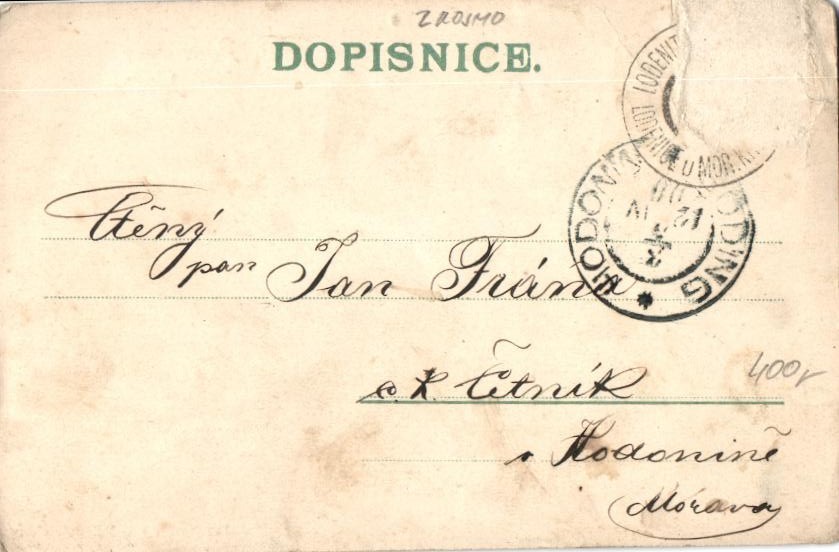 ZROJMO
DOPISNICE.
LODENIT
LODENICE U MOR. KR
HODONIN
HODING
Ctěný
pan Jan Frána
c. k. Četník
v Hodonině
Mórava
400,-